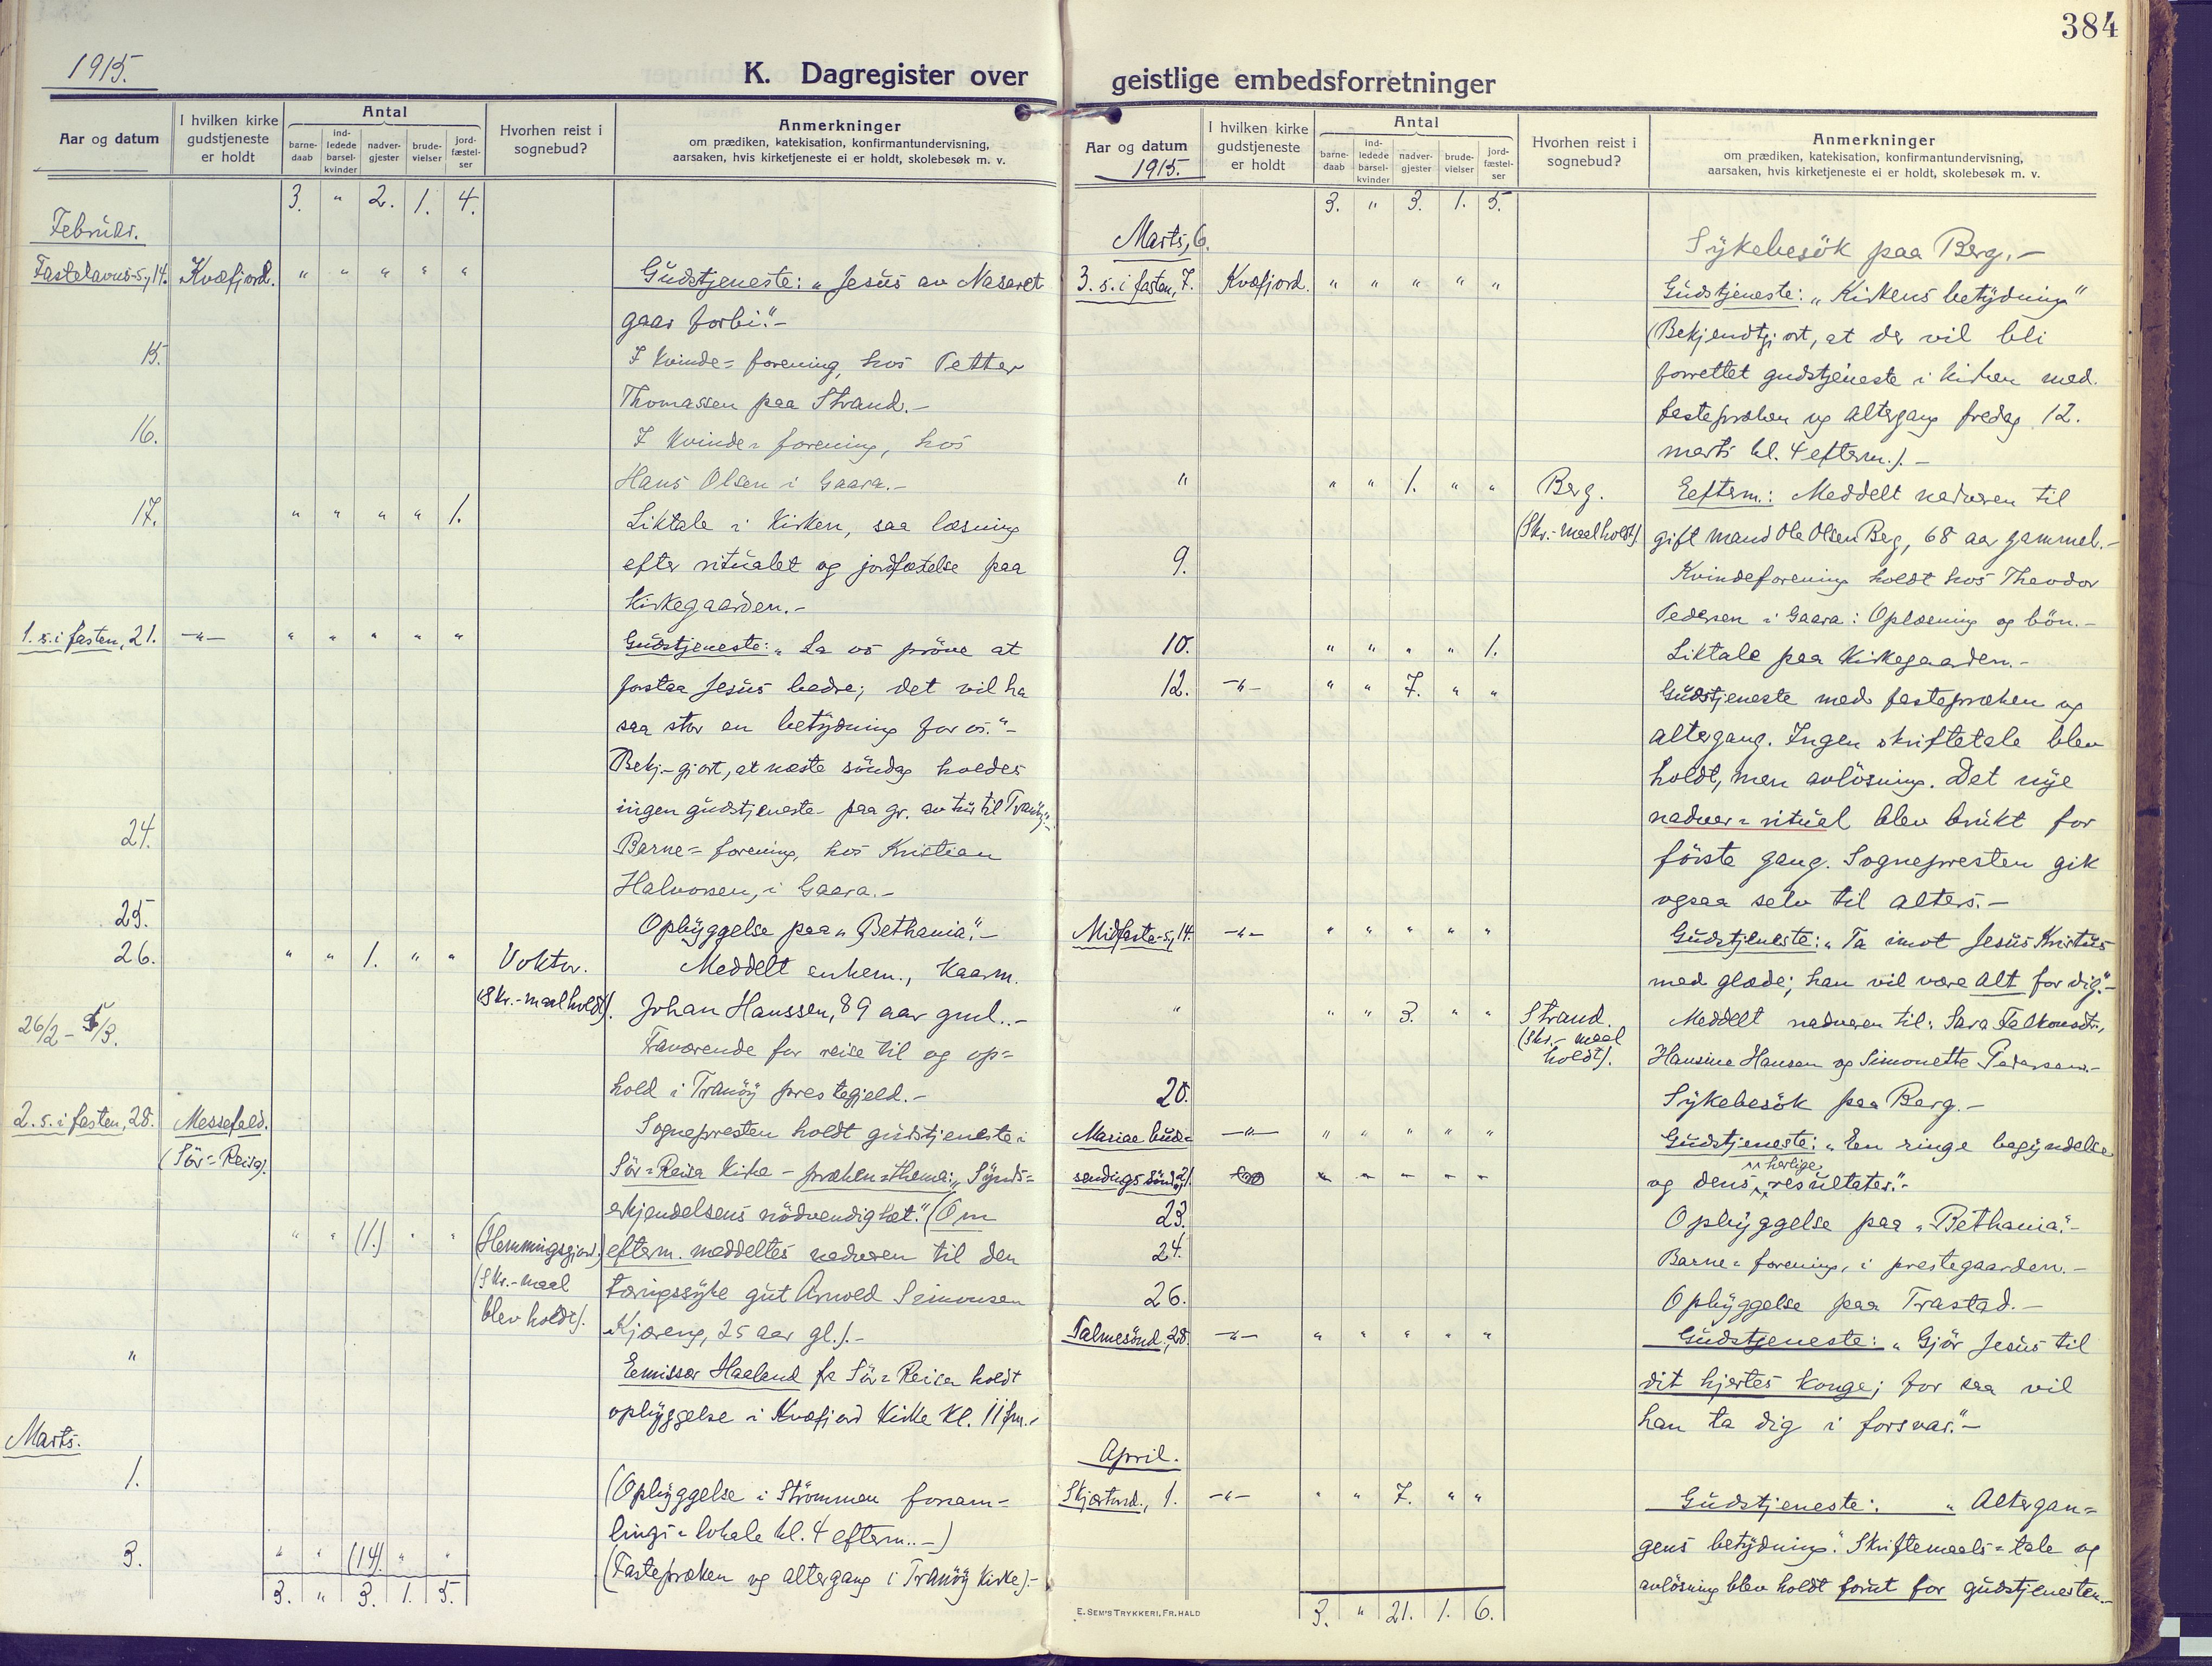 384
1915.
K. Dagregister over
geistlige embedsforretninger
Aar og datum
I hvilken kirke gudstjeneste er holdt
Antal
barne-daab
ind-ledede barsel-kvinder
nadver-gjester
brude-vielser
jord-fæstel-ser
Hvorhen reist i sognebud?
Anmerkninger
om prædiken, katekisation, konfirmantundervisning,
aarsaken, hvis kirketjeneste ei er holdt, skolebesøk m. v.
3. " 2. 1. 4.
Februar.
Fastelavns-s., 14. Kvæfjord. " " " " " Gudstjeneste: "Jesus av Nasaret
gaar forbi."-
15. I Kvinde=forening, hos Petter
Thomassen paa Strand.-
16. I Kvinde=forening, hos
Hans Olsen i Gaara.-
17. " " " " 1. Liktale i Kirken, saa læsning
efter ritualet og jordfæstelse paa
Kirkegaarden.-
1. s. i fasten, 21. -"- " " " " " Gudstjeneste: "La os pröve at
forstaa Jesus bedre; det vil ha
saa stor en betydning for os."-
Bekj.-gjort, at næste söndag holdes
ingen gudstjeneste paa gr. av tur til Tranöy.-
24. Barne=forening, hos Kristian
Halvorsen, i Gaara.-
25. Opbyggelse paa "Bethania".-
26. " " 1. " " Voktor. Meddelt enkem., Kaarm.
(Skr.-maal holdt). Johan Hanssen, 89 aar gml..-
26/2 - 5/3. Fraværende for reise til og op=
hold i Tranöy prestegjeld.-
2. s. i fasten, 28. Messefald. Sognepresten holdt gudstjeneste i
(Sör=Reisa). Sör=Reisa Kirke - præken=thema: "Synds=
erkjendelsens nödvendighet." (Om
" " (1.) " " (Hemmingsgjord.) efterm. meddeltes nadveren til den
(Skr.-maal tæringssyke gut Arnold Simonsen
blev holdt). Kjæreng, 25 aar gl.).-
" Emissær Haaland fr Sör=Reisa holdt
opbyggelse i Kvæfjord Kirke Kl. 11 fm.-
Marts.
1. (Opbyggelse i Strömmen forsam-
lings=lokale kl. 4 efterm..-)
3. " " (14). " " (Fastepræken og altergang i Tranöy Kirke).-
3. " 3. 1. 5.
Aar og datum
1915.
I hvilken kirke gudstjeneste er holdt
Antal
barne-daab
ind-ledede barsel-kvinder
nadver-gjester
brude-vielser
jord-fæstel-ser
Hvorhen reist i sognebud?
Anmerkninger
om prædiken, katekisation, konfirmantundervisning,
aarsaken, hvis kirketjeneste ei er holdt, skolebesøk m. v.
3. " 3. 1. 5.
Marts, 6. Sykebesök paa Berg.-
3. s. i fasten, 7. Kvæfjord. " " " " " Gudstjeneste: "Kirkens betydning"
(Bekjendtgjort, at der vil bli
forrettet gudstjeneste i kirken med
fastepræken og altergang fredag 12.
marts kl. 4 efterm.).-
" " " 1. " " Berg. Efterm.: Meddelt nadveren til
(Skr.-maal holdt) gift mand Ole Olsen Berg, 68 aar gammel.-
9. Kvindeforening holdt hos Theodor
Pedersen i Gaara: Oplæsning og bön.-
10. " " " " 1. Liktale paa Kirkegaarden.-
12. -"- " " 7. " " Gudstjeneste med fastepræken og
altergang. Ingen skriftetale blev
holdt, men avlösning. Det nye
nadver=ritual blev brukt for
förste gang. Sognepresten gik
ogsaa selv til alters.-
Midfaste-s., 14. -"- " " " " " Gudstjeneste: "Ta imot Jesus Kristus
med glæde; han vil være Alt for dig."-
" " " 3. " " Strand. Meddelt nadveren til: Sara Falkonsdtr.,
(Skr.-maal holdt). Hansine Hansen og Simonette Pedersen.-
20. Sykebesök paa Berg.-
Mariae bud= -"- " " " " " Gudstjeneste: "En ringe begyndelse
sendings sönd., 21. og dens herlige resultater."-
23. Opbyggelse paa "Bethania".-
24. Barne=forening, i prestegaarden.-
26. Opbyggelse paa Trastad.-
Palmesönd., 28. -"- " " " " " Gudstjeneste: "Gjör Jesus til
dit hjertes konge; for saa vil
han ta dig i forsvar."-
April.
Skjærtorsd., 1. -"- " " 7. " " Gudstjeneste: "Altergan=
gens betydning." Skriftemaals=tale og
avlösning blev holdt forut for gudstjenesten.-
3. " 21. 1. 6.
E. SEM'S TRYKKERI, FR.HALD